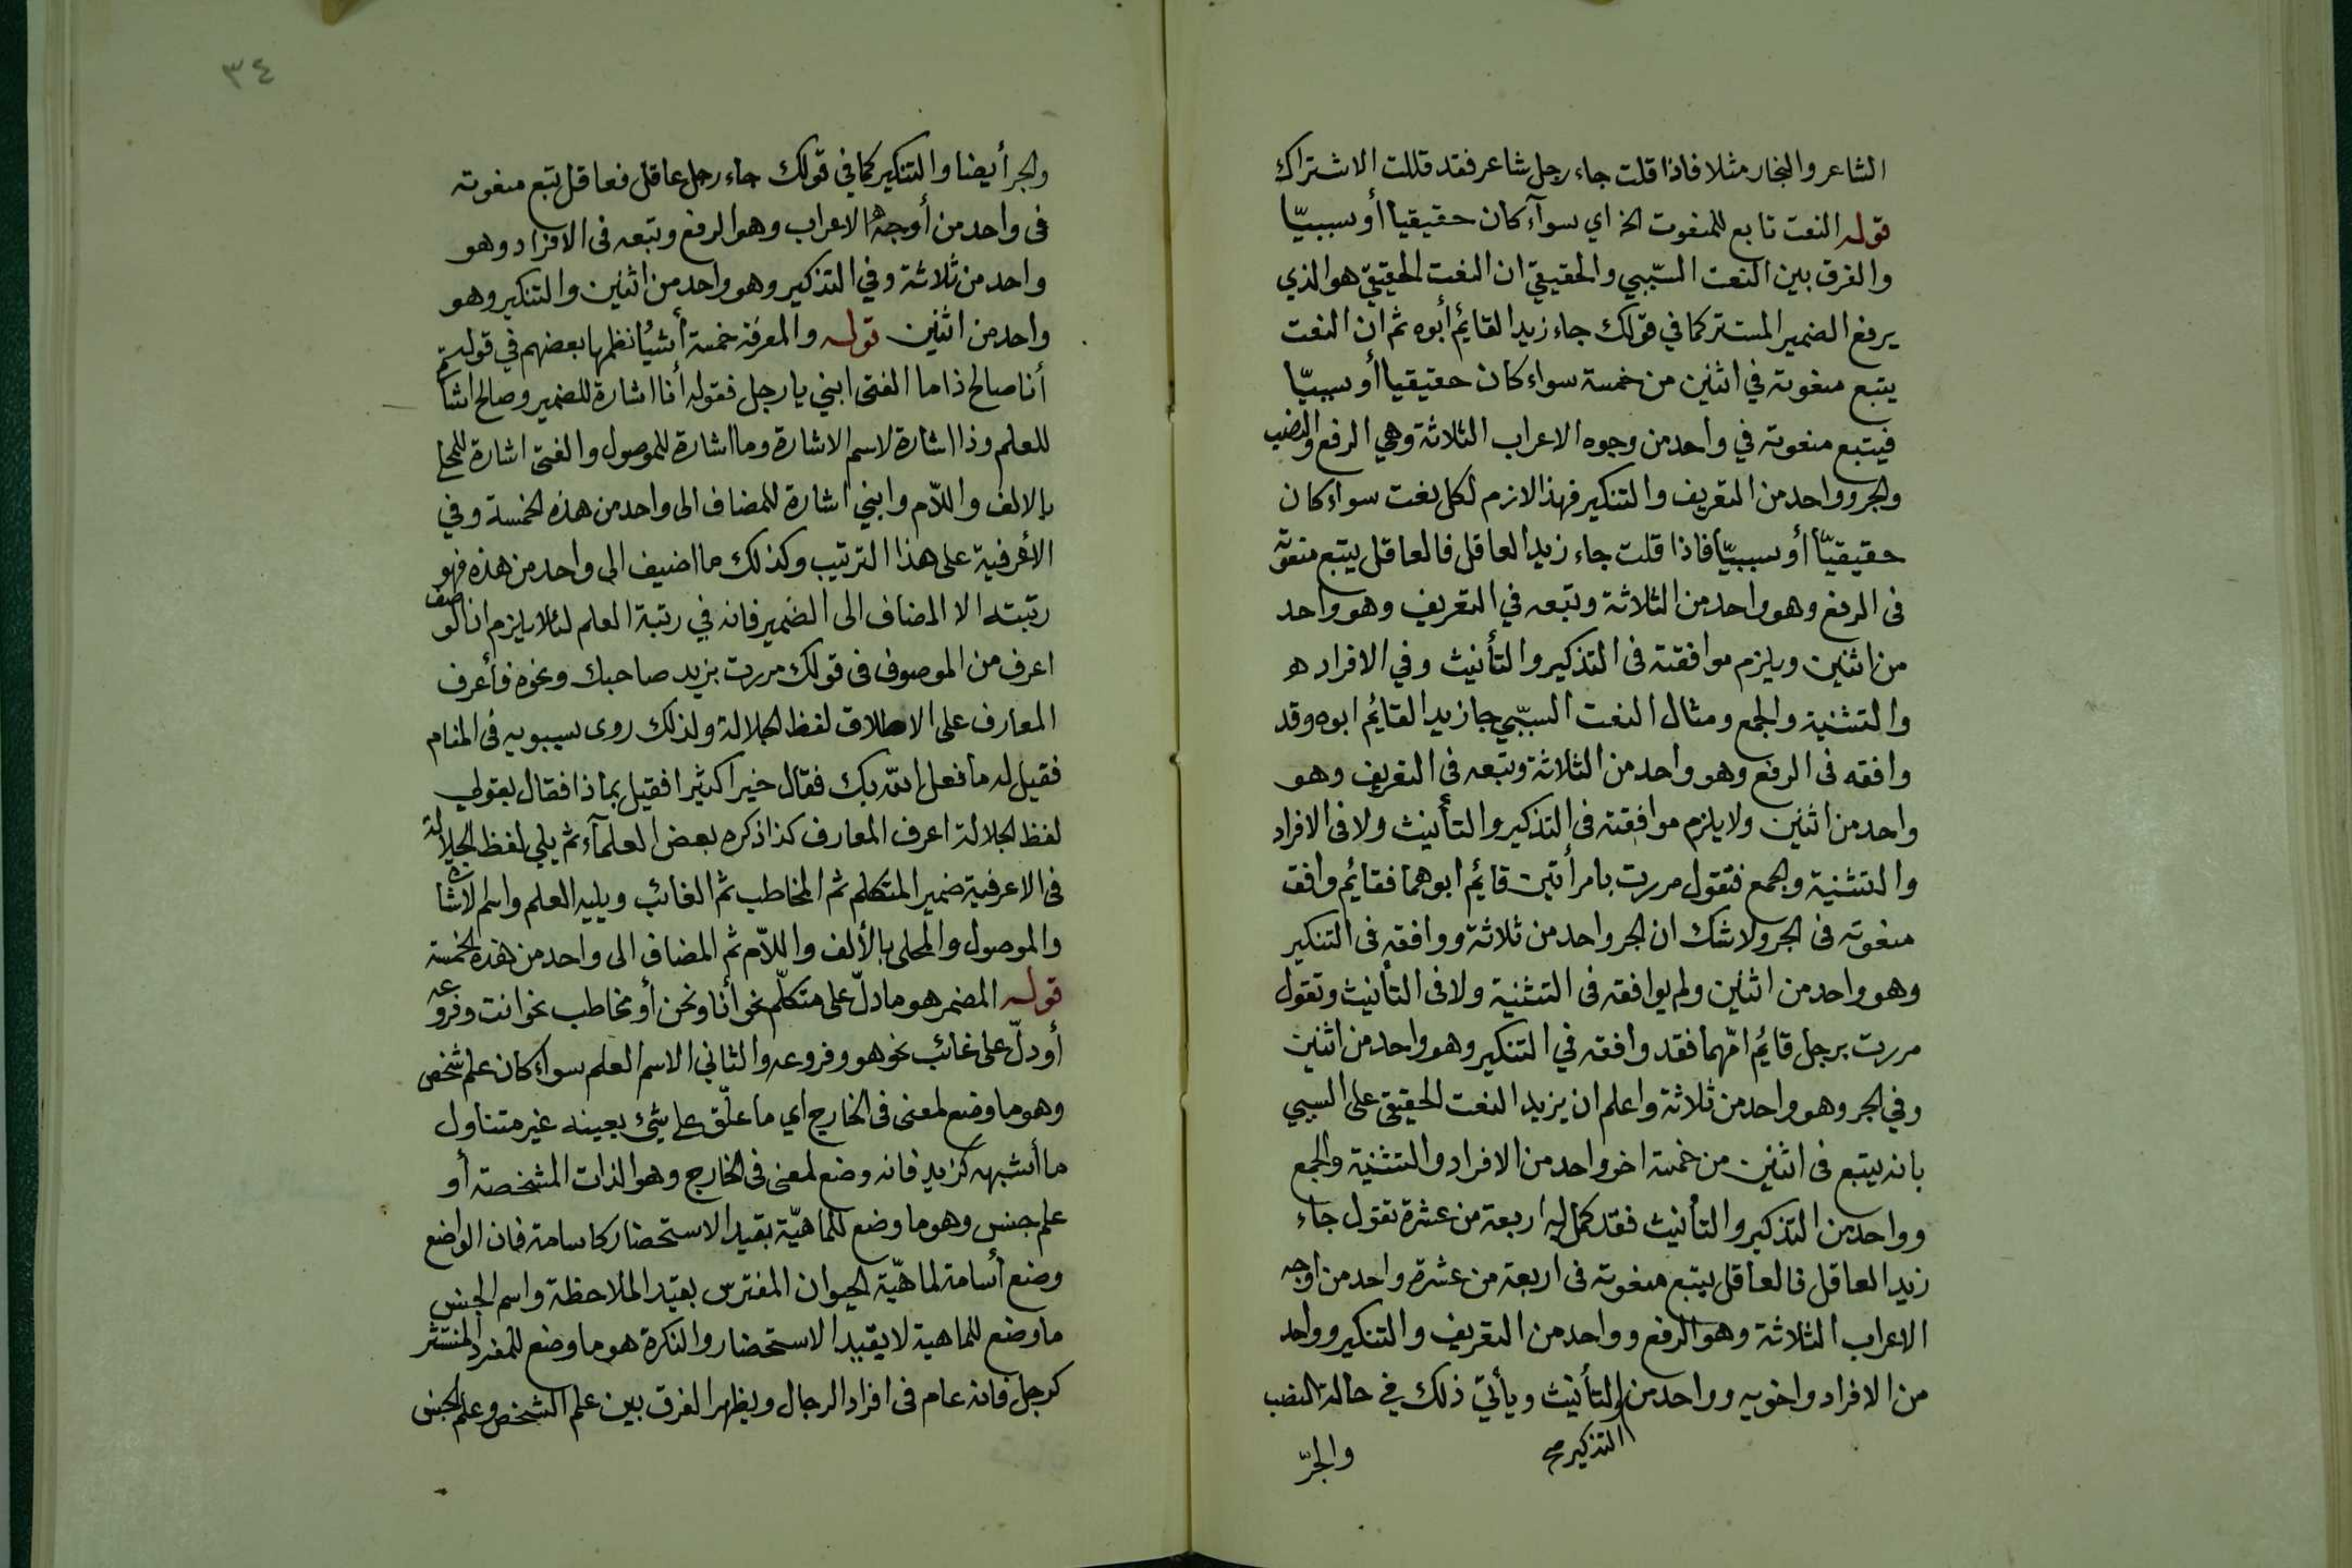 الشاعر والنجار مثلا فاذا قلت جاء رجل شاعر فقد قللت الاشتراك
قوله النعت تابع للمنعوت الخ اي سوآء كان حقيقيا أو سببيّا
والفرق بين النعت السّببي والحقيقيّ ان النعت الحقيقيّ هو الذي
يرفع الضمير المستتر كما في قولك جاء زيد القايم أبوه ثم ان النعت
يتبع منعوته في اثنين من خمسة سواء كان حقيقيا أو سببيّا
فيتبع منعوته في واحد من وجوه الاعراب الثلاثة وهي الرفع والنصب
والجر وواحد من التعريف والتنكير فهذا لازم لكل نعت سواء كان
حقيقيّا أو سببيّا فاذا قلت جاء زيد العاقل فالعاقل يتبع منعوته
فى الرفع وهو واحد من الثلاثة وتبعه في التعريف وهو واحد
من اثنين ويلزم موافقته فى التذكير والتأنيث وفي الافراد
والتثنية والجمع ومثال النعت السببّي جا زيد القايم ابوه وقد
وافقه فى الرفع وهو واحد من الثلاثة وتبعه فى التعريف وهو
واحد من اثنين ولا يلزم موافقته فى التذكير والتأنيث ولا فى الافراد
والتثنية والجمع فتقول مررت بامرأتين قائم ابوهما فقائم وافق
منعوته فى الجر ولا شك ان الجر واحد من ثلاثة ووافقه فى التنكير
وهو واحد من اثنين ولم يوافقه فى التثنية ولا فى التأنيث وتقول
مررت برجل قايم امّهما فقد وافقه في التنكير وهو واحد من اثنين
وفي الجر وهو واحد من ثلاثة واعلم ان يزيد النعت الحقيقي على السببي
بانه يتبع فى اثنين من خمسة اخر واحد من الافراد والتثنية والجمع
وواحد من التذكير والتأنيث فقد كمل له اربعة من عشرة تقول جاء
زيد العاقل فالعاقل يتبع منعوته فى اربعة من عشرة واحد من اوجه
الاعراب الثلاثة وهو الرفع وواحد من التعريف والتنكير وواحد
من الافراد واخويه وواحد من والتأنيث ويأتيّ ذلك في حالة النصب
التذكير صح
والجرّ
٣٤
والجر أيضا والتنكير كما في قولك جاء رجل عاقل فعاقل تبع منعوته
فى واحد من أوجه الاعراب وهو الرفع وتبعه فى الافراد وهو
واحد من ثلاثة وفي التذكير وهو واحد من اثنين والتنكير وهو
واحد من اثنين قوله والمعرفة خمسة أشيا نظمها بعضهم في قوله
أنا صالح ذا ما الفتى ابني يا رجل فقوله أنا اشارة للضمير وصالح اشا
للعلم وذا اشارة لاسم الاشارة وما اشارة للموصول والفتى اشارة للمحلى
بالالف واللّام وابني اشارة للمضاف الى واحد من هذه الخمسة وفي
الأعرفية على هذا الترتيب وكذلك ما اضيف الى واحد من هذه فهو
رتبته الا المضاف الى الضمير فانه في رتبة العلم لئلا يلزم ان الوصف
اعرف من الموصوف فى قولك مررت بزيد صاحبك ونحوه فأعرف
المعارف على الاطلاق لفظ الجلالة ولذلك روى سيبويه فى المنام
فقيل له ما فعل الله بك فقال خيرا كثيرا فقيل بماذا فقال بقولي
لفظ الجلالة اعرف المعارف كذا ذكره بعض العلمآء ثم يلي لفظ الجلالة
فى الاعرفية ضمير المتكلم ثم المخاطب ثم الغائب ويليه العلم واسم الاشا
والموصول والمحلى بالألف واللّام ثم المضاف الى واحد من هذه الخمسة
قوله المضمر هو ما دلّ على متكلّم نحو أنا ونحن أو مخاطب نحو انت وفروعه
أو دلّ على غائب نحو هو وفروعه والثاني الاسم العلم سواء كان علم شخص
وهو ما وضع لمعنى فى الخارج اي ما علّق على شئ بعينه غير متناول
ما أشبهه كزيد فانه وضع لمعنى فى الخارج وهو الذات المشخصة أو
علم جنس وهو ما وضع للماهيّة بقيد الاستحضار كاسامة فان الواضع
وضع أسامة لماهيّة الحيوان المفترس بقيد الملاحظة واسم الجنس
ما وضع للماهية لا بقيد الاستحضار والنكرة هو ما وضع للفرد المنتشر
كرجل فانه عام فى افراد الرجال ويظهر الفرق بين علم الشخص وعلم الجنس